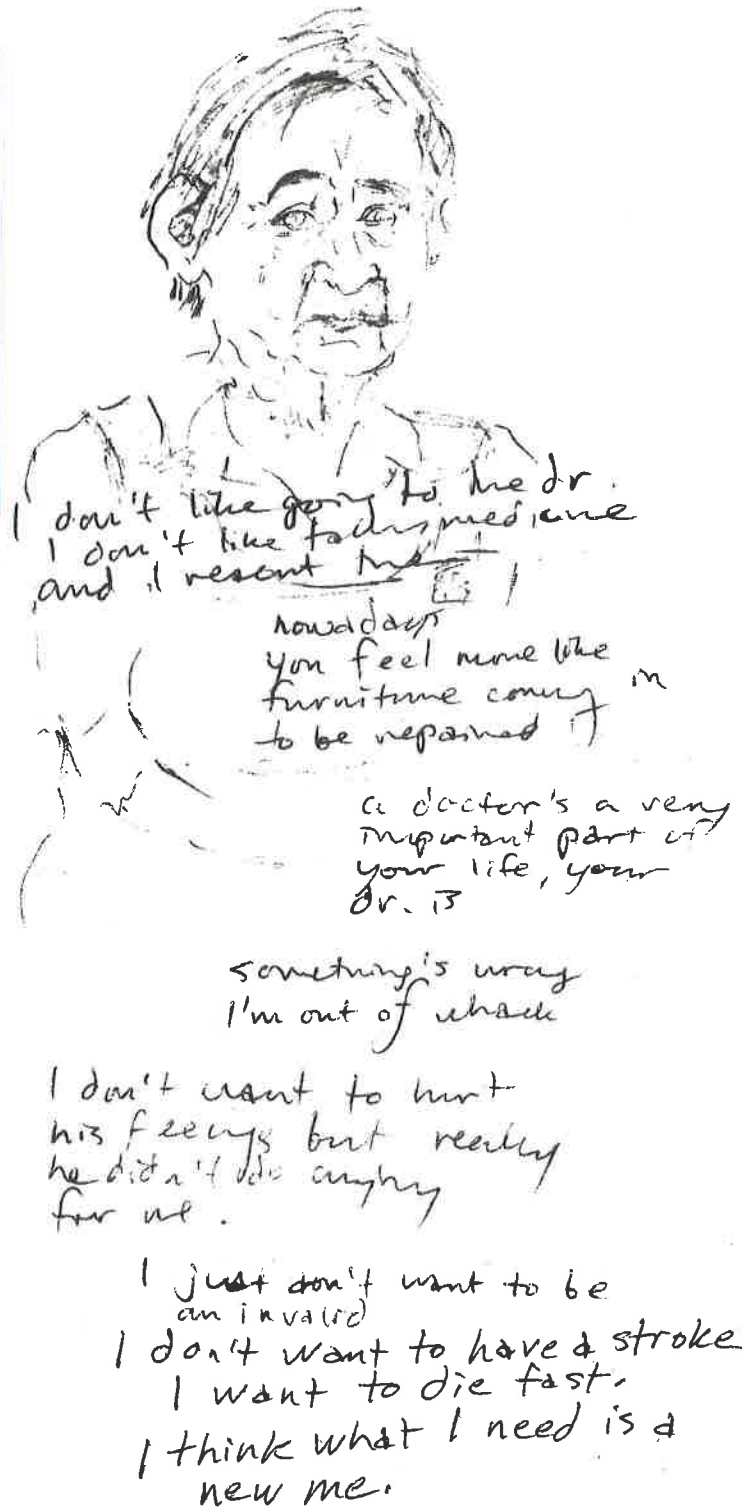 I don't like going to the dr.
I don't like taking medicine
and I resent the
nowadays
you feel more like
furniture coming in
to be repaired
a doctor's a very
important part of
your life, your
dr. is
something's wrong
I'm out of whack
I don't want to hurt
his feelings but really
he didn't do anything
for me.
I just don't want to be
an invalid
I don't want to have a stroke
I want to die fast.
I think what I need is a
new me.